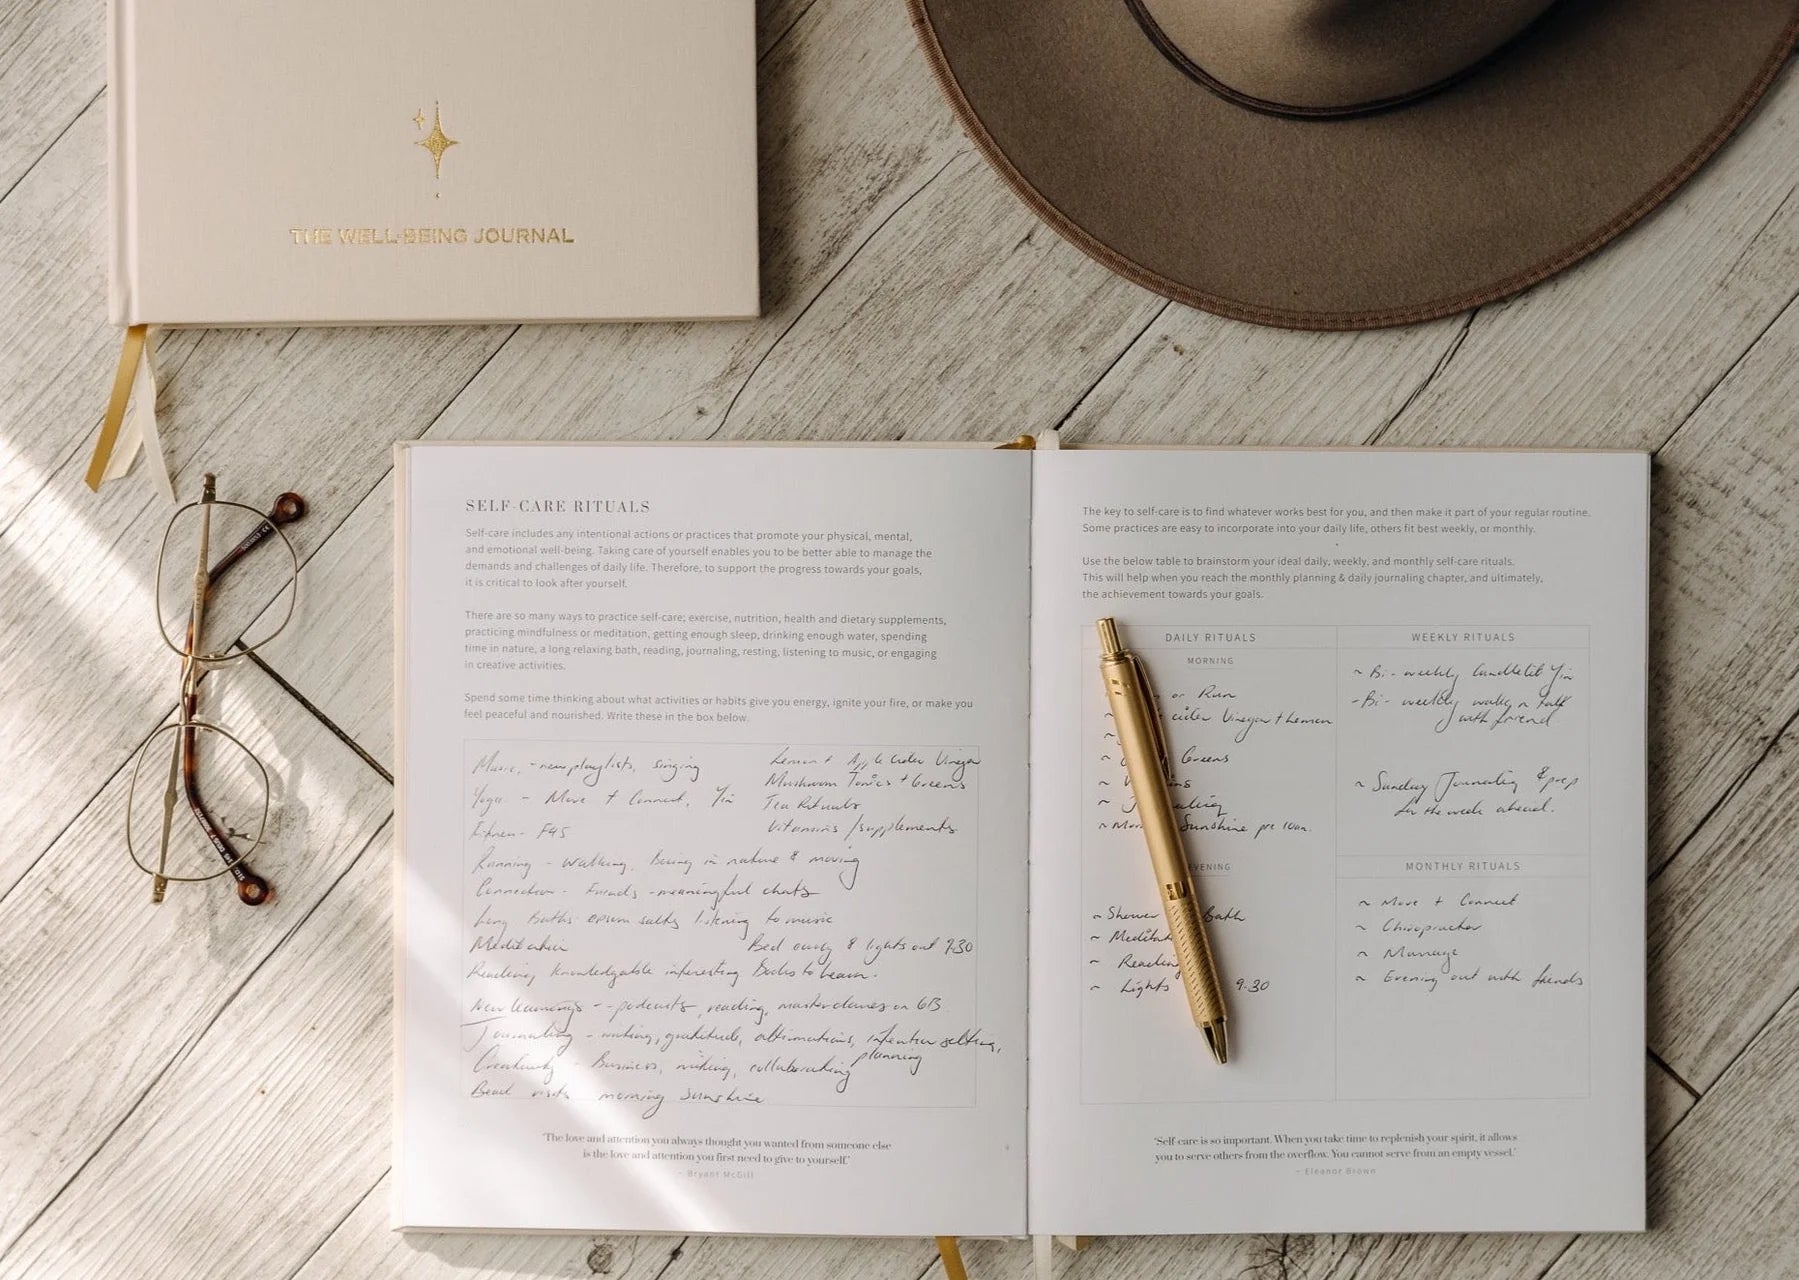 THE WELL-BEING JOURNAL
SELF-CARE RITUALS
Self-care includes any intentional actions or practices that promote your physical, mental,
and emotional well-being. Taking care of yourself enables you to be better able to manage the
demands and challenges of daily life. Therefore, to support the progress towards your goals,
it is critical to look after yourself.
There are so many ways to practice self-care; exercise, nutrition, health and dietary supplements,
practicing mindfulness or meditation, getting enough sleep, drinking enough water, spending
time in nature, a long relaxing bath, reading, journaling, resting, listening to music, or engaging
in creative activities.
Spend some time thinking about what activities or habits give you energy, ignite your fire, or make you
feel peaceful and nourished. Write these in the box below.
Music, - new playlists, singing
Lemon + Apple Cider Vinegar
Mushroom Tonics + Greens
Yoga - Move + Connect, Yin
Tea Rituals
Fitness - F45
Vitamins / supplements
Running - walking, Being in nature & moving
Connection - Friends - meaningful chats
Long Baths epsom salts listening to music
Meditation
Bed early & lights out 9.30
Reading knowledgable interesting Books to learn.
New learnings - - podcasts, reading, masterclasses on GB
Journaling - writing, gratitude, affirmations, intention setting,
planning
Creativity - Business, writing, collaborating
Beach visits morning Sunshine
'The love and attention you always thought you wanted from someone else
is the love and attention you first need to give to yourself.'
~ Bryant McGill
The key to self-care is to find whatever works best for you, and then make it part of your regular routine.
Some practices are easy to incorporate into your daily life, others fit best weekly, or monthly.
Use the below table to brainstorm your ideal daily, weekly, and monthly self-care rituals.
This will help when you reach the monthly planning & daily journaling chapter, and ultimately,
the achievement towards your goals.
DAILY RITUALS
MORNING
or Run
~ cider Vinegar + Lemon
~
~ Greens
~
~
~ Sunshine pre 10am.
EVENING
~ Shower Bath
~
~ Reading
~ Lights 9.30
WEEKLY RITUALS
~ Bi-weekly Candlelit Yin
- Bi-weekly walk n talk
with friend
~ Sunday Journaling & prep
for the week ahead.
MONTHLY RITUALS
~ Move + Connect
~ Chiropractor
~ Massage
~ Evening out with friends
'Self-care is so important. When you take time to replenish your spirit, it allows
you to serve others from the overflow. You cannot serve from an empty vessel.'
~ Eleanor Brown